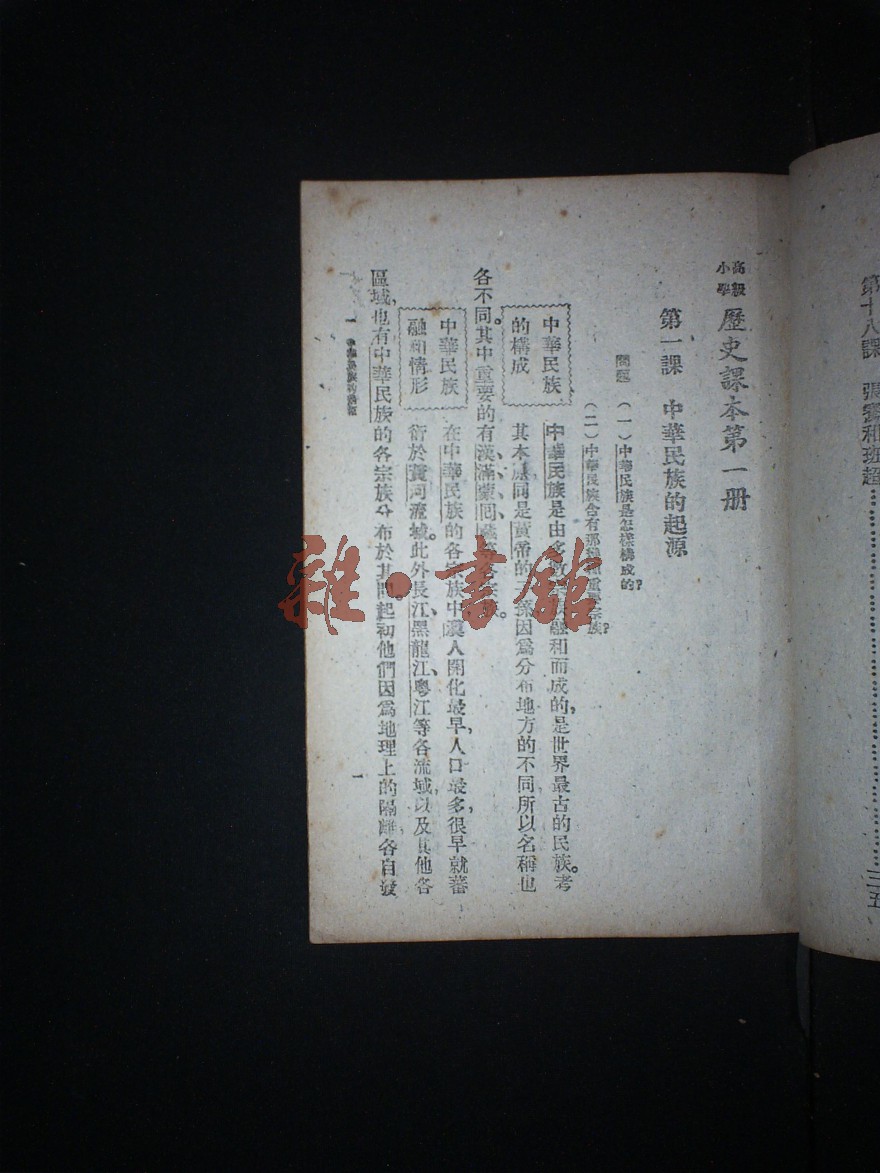 第十八課　張騫和班超……三五
高級小學　歷史課本第一册
第一課　中華民族的起源
問題　（一）中華民族是怎樣構成的？
（二）中華民族含有那 重要宗族？
中華民族的構成
中華民族是由多數宗族融和而成的，是世界最古的民族。考
其本源同是黃帝的 孫因爲分布地方的不同所以名稱也
各不同。其中重要的有漢、滿、蒙、回、藏等各宗族。
中華民族融和情形
在中華民族的各宗族中漢人開化最早，人口最多，很早就蕃
衍於黃河流域。此外長江、黑龍江、粵江等各流域，以及其他各
區域，也有中華民族的各宗族分布於其間。起初他們因爲地理上的隔離各自發
一　中華民族的起源
一
雜·書館